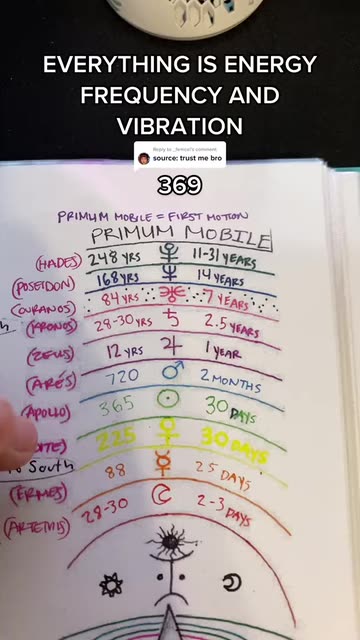 EVERYTHING IS ENERGY
FREQUENCY AND
VIBRATION
Reply to _femcel's comment
source: trust me bro
369
PRIMUM MOBILE = FIRST MOTION
PRIMUM MOBILE
(HADES) 248 YRS ♇ 11-31 YEARS
(POSEIDON) 168 YRS ♆ 14 YEARS
(OURANOS) 84 YRS ♅ 7 YEARS
(KRONOS) 28-30 YRS ♄ 2.5 YEARS
(ZEUS) 12 YRS ♃ 1 YEAR
(ARES) 720 ♂ 2 MONTHS
(APOLLO) 365 ☉ 30 DAYS
DITE) 225 ♀ 30 DAYS
to South
88 ☿ 25 DAYS
(ERMES)
28-30 ☾ 2-3 DAYS
(ARTEMIS)